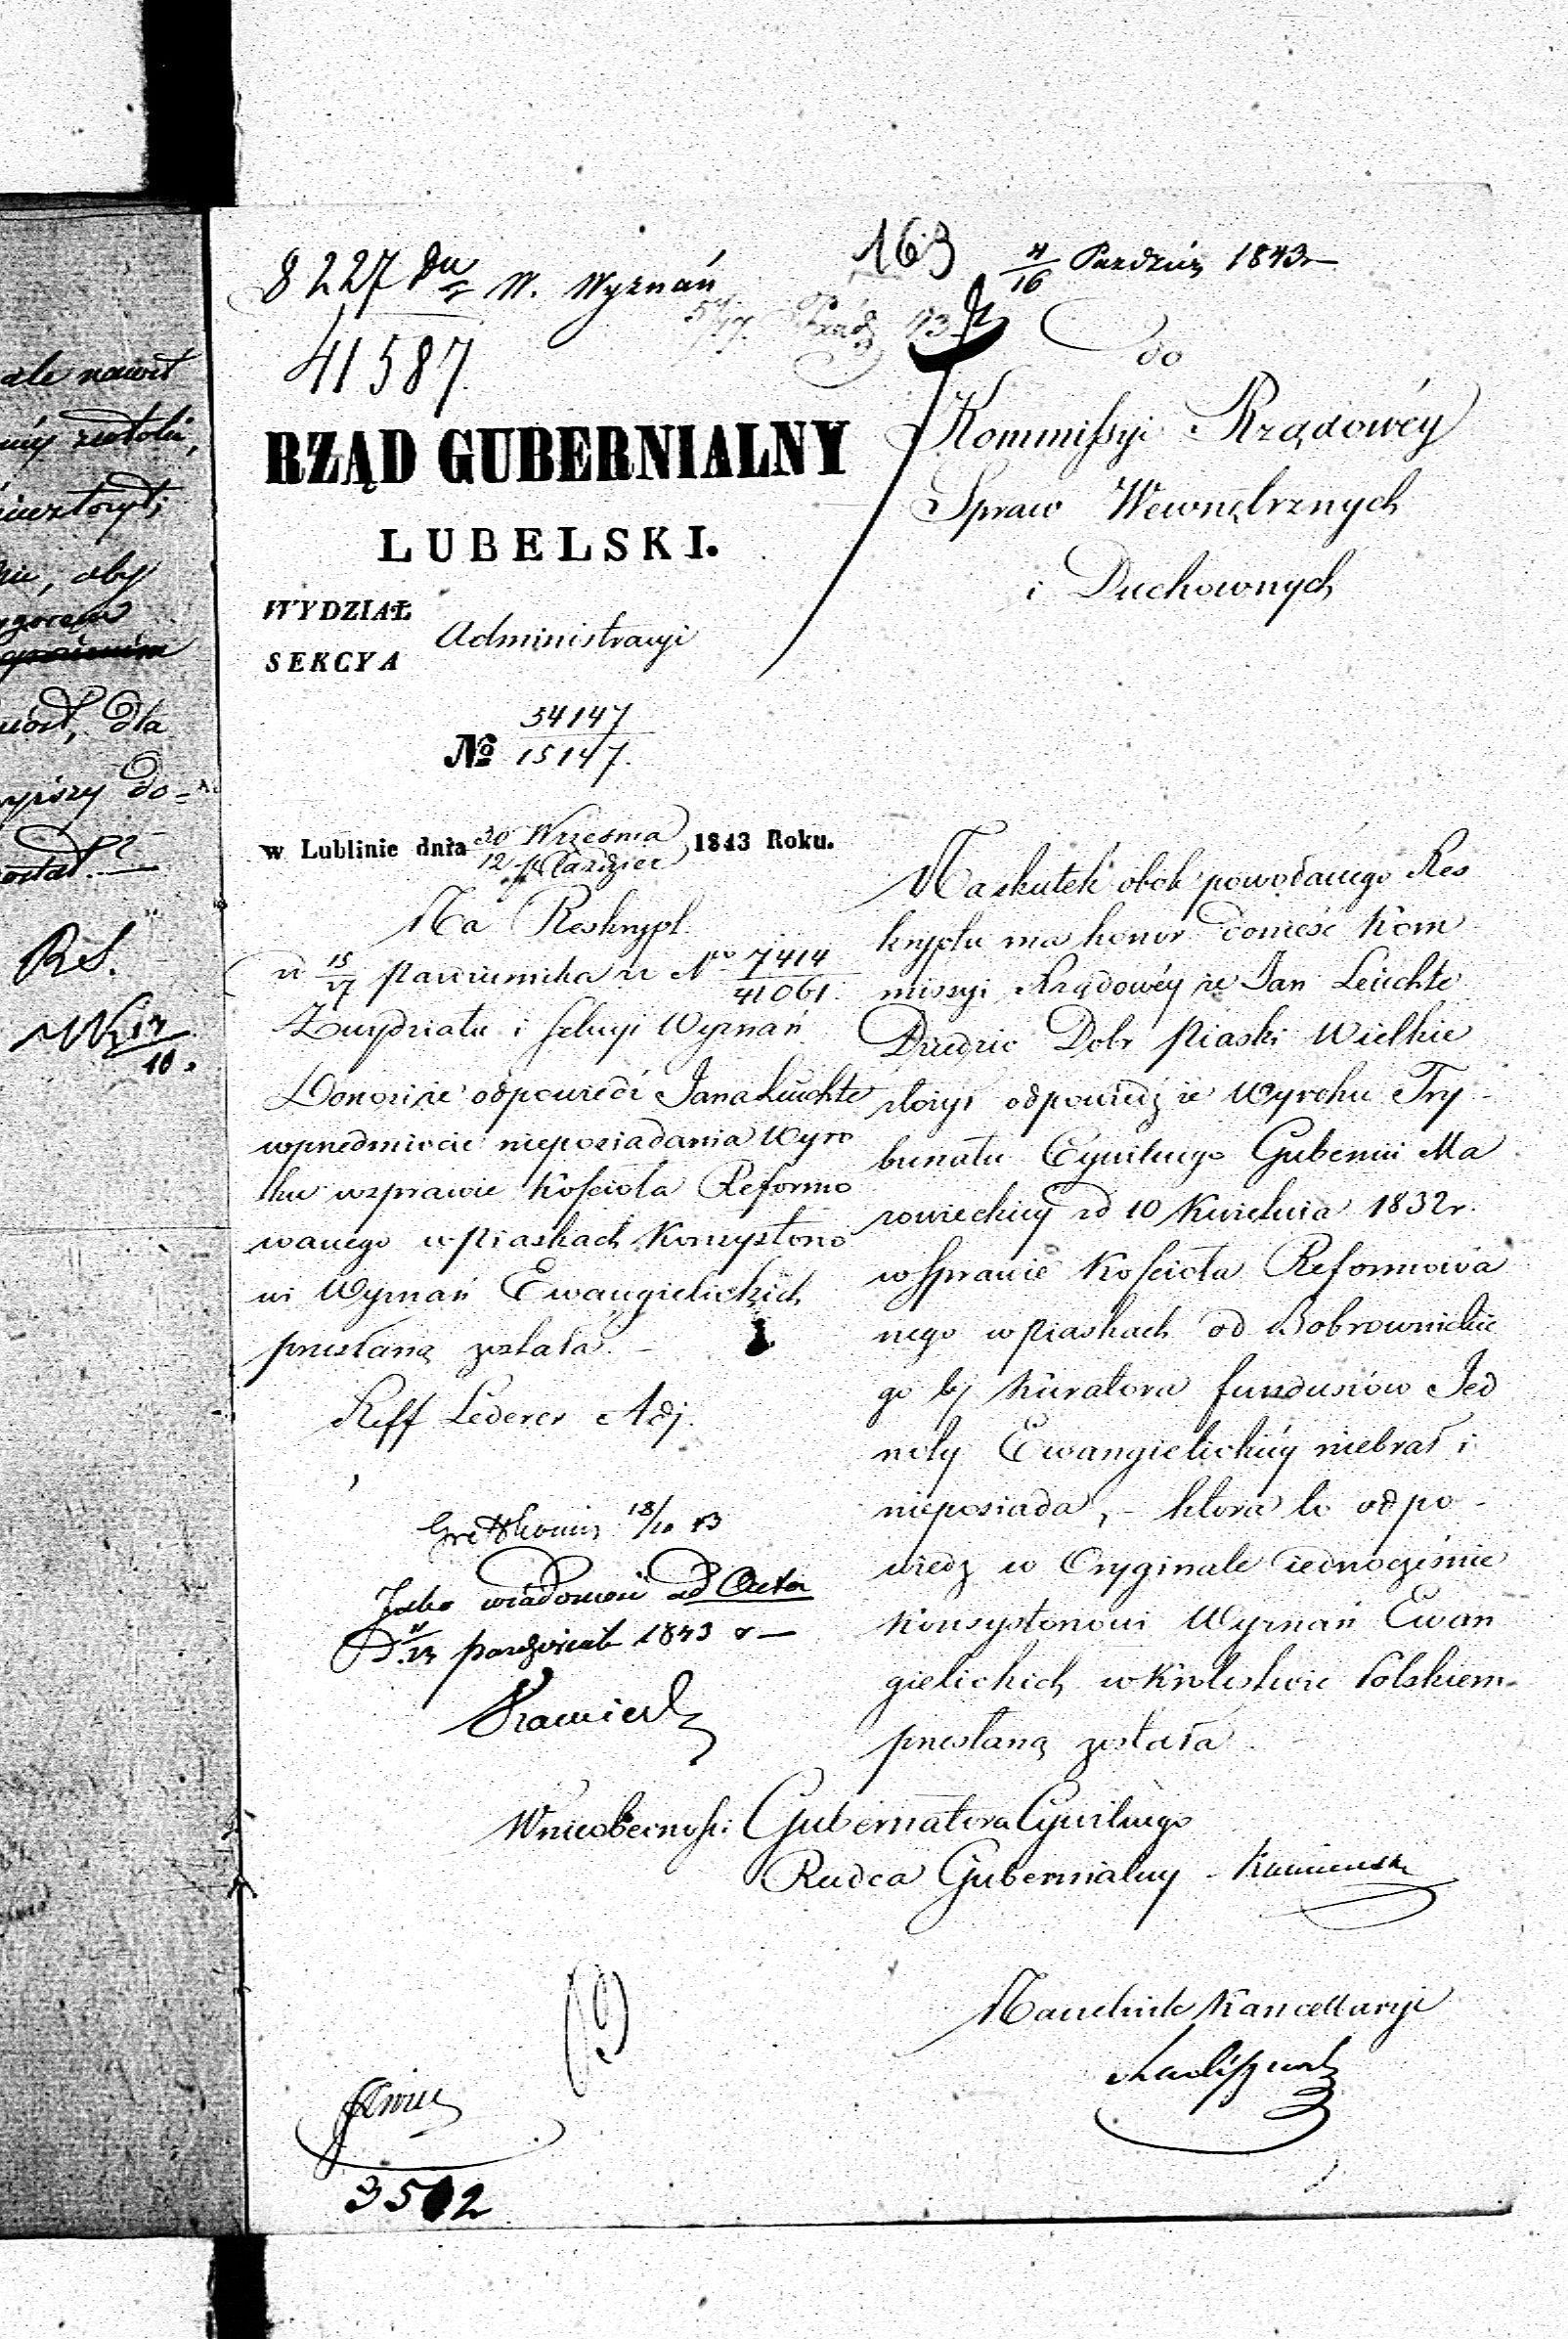 163
4/16 Paździer 1843 r
8227 W. Wyznań
41587.
RZĄD GUBERNIALNY
LUBELSKI.
WYDZIAŁ
SEKCYA
Administracyi
No 54147
15147.
w Lublinie dnia 30 Września 1843 Roku.
12 Paździer
Na Reskrypt
z 15/27 Października z No 7414
41061.
Z wydziału i Sekcyi Wyznań
Donosi że odpowiedź Jana Leuchte
w przedmiocie nieposiadania Wyro
ku w sprawie Kościoła Reformo
wanego w Piaskach Konsystorzo
wi Wyznań Ewangielickich
przesłaną została. -
Reff Lederer Adj.
18/10 43
Jako wiadomość ad Acta
D. październik 1843 r —
do
Kommissyi Rządowéy
Spraw Wewnętrznych
i Duchownych
Na skutek obok powołanego Res
kryptu ma honor donieść Kom
missyi Rządowéy że Jan Leuchte
Dziedzic Dobr Piaski Wielkie
złożył odpowiedź że Wyroku Try -
bunału Cywilnego Gubernii Ma
zowieckiey z d 10 Kwietnia 1832 r.
w Sprawie Kościoła Reformowa
nego w Piaskach od Bobrownickie
go bj Kuratora funduszów Jed
noty Ewangielickiéy niebrał i
nieposiada, - która to odpo -
wiedz w Oryginale iednocześnie
Konsystorzowi Wyznań Ewan
gielickich w Królestwie Polskiem -
przesłaną została
W nieobecności Gubernatora Cywilnego
Radca Gubernialny
Naczelnik Kancellaryi
3502
ale nawet
aby
dla
do=
R S.